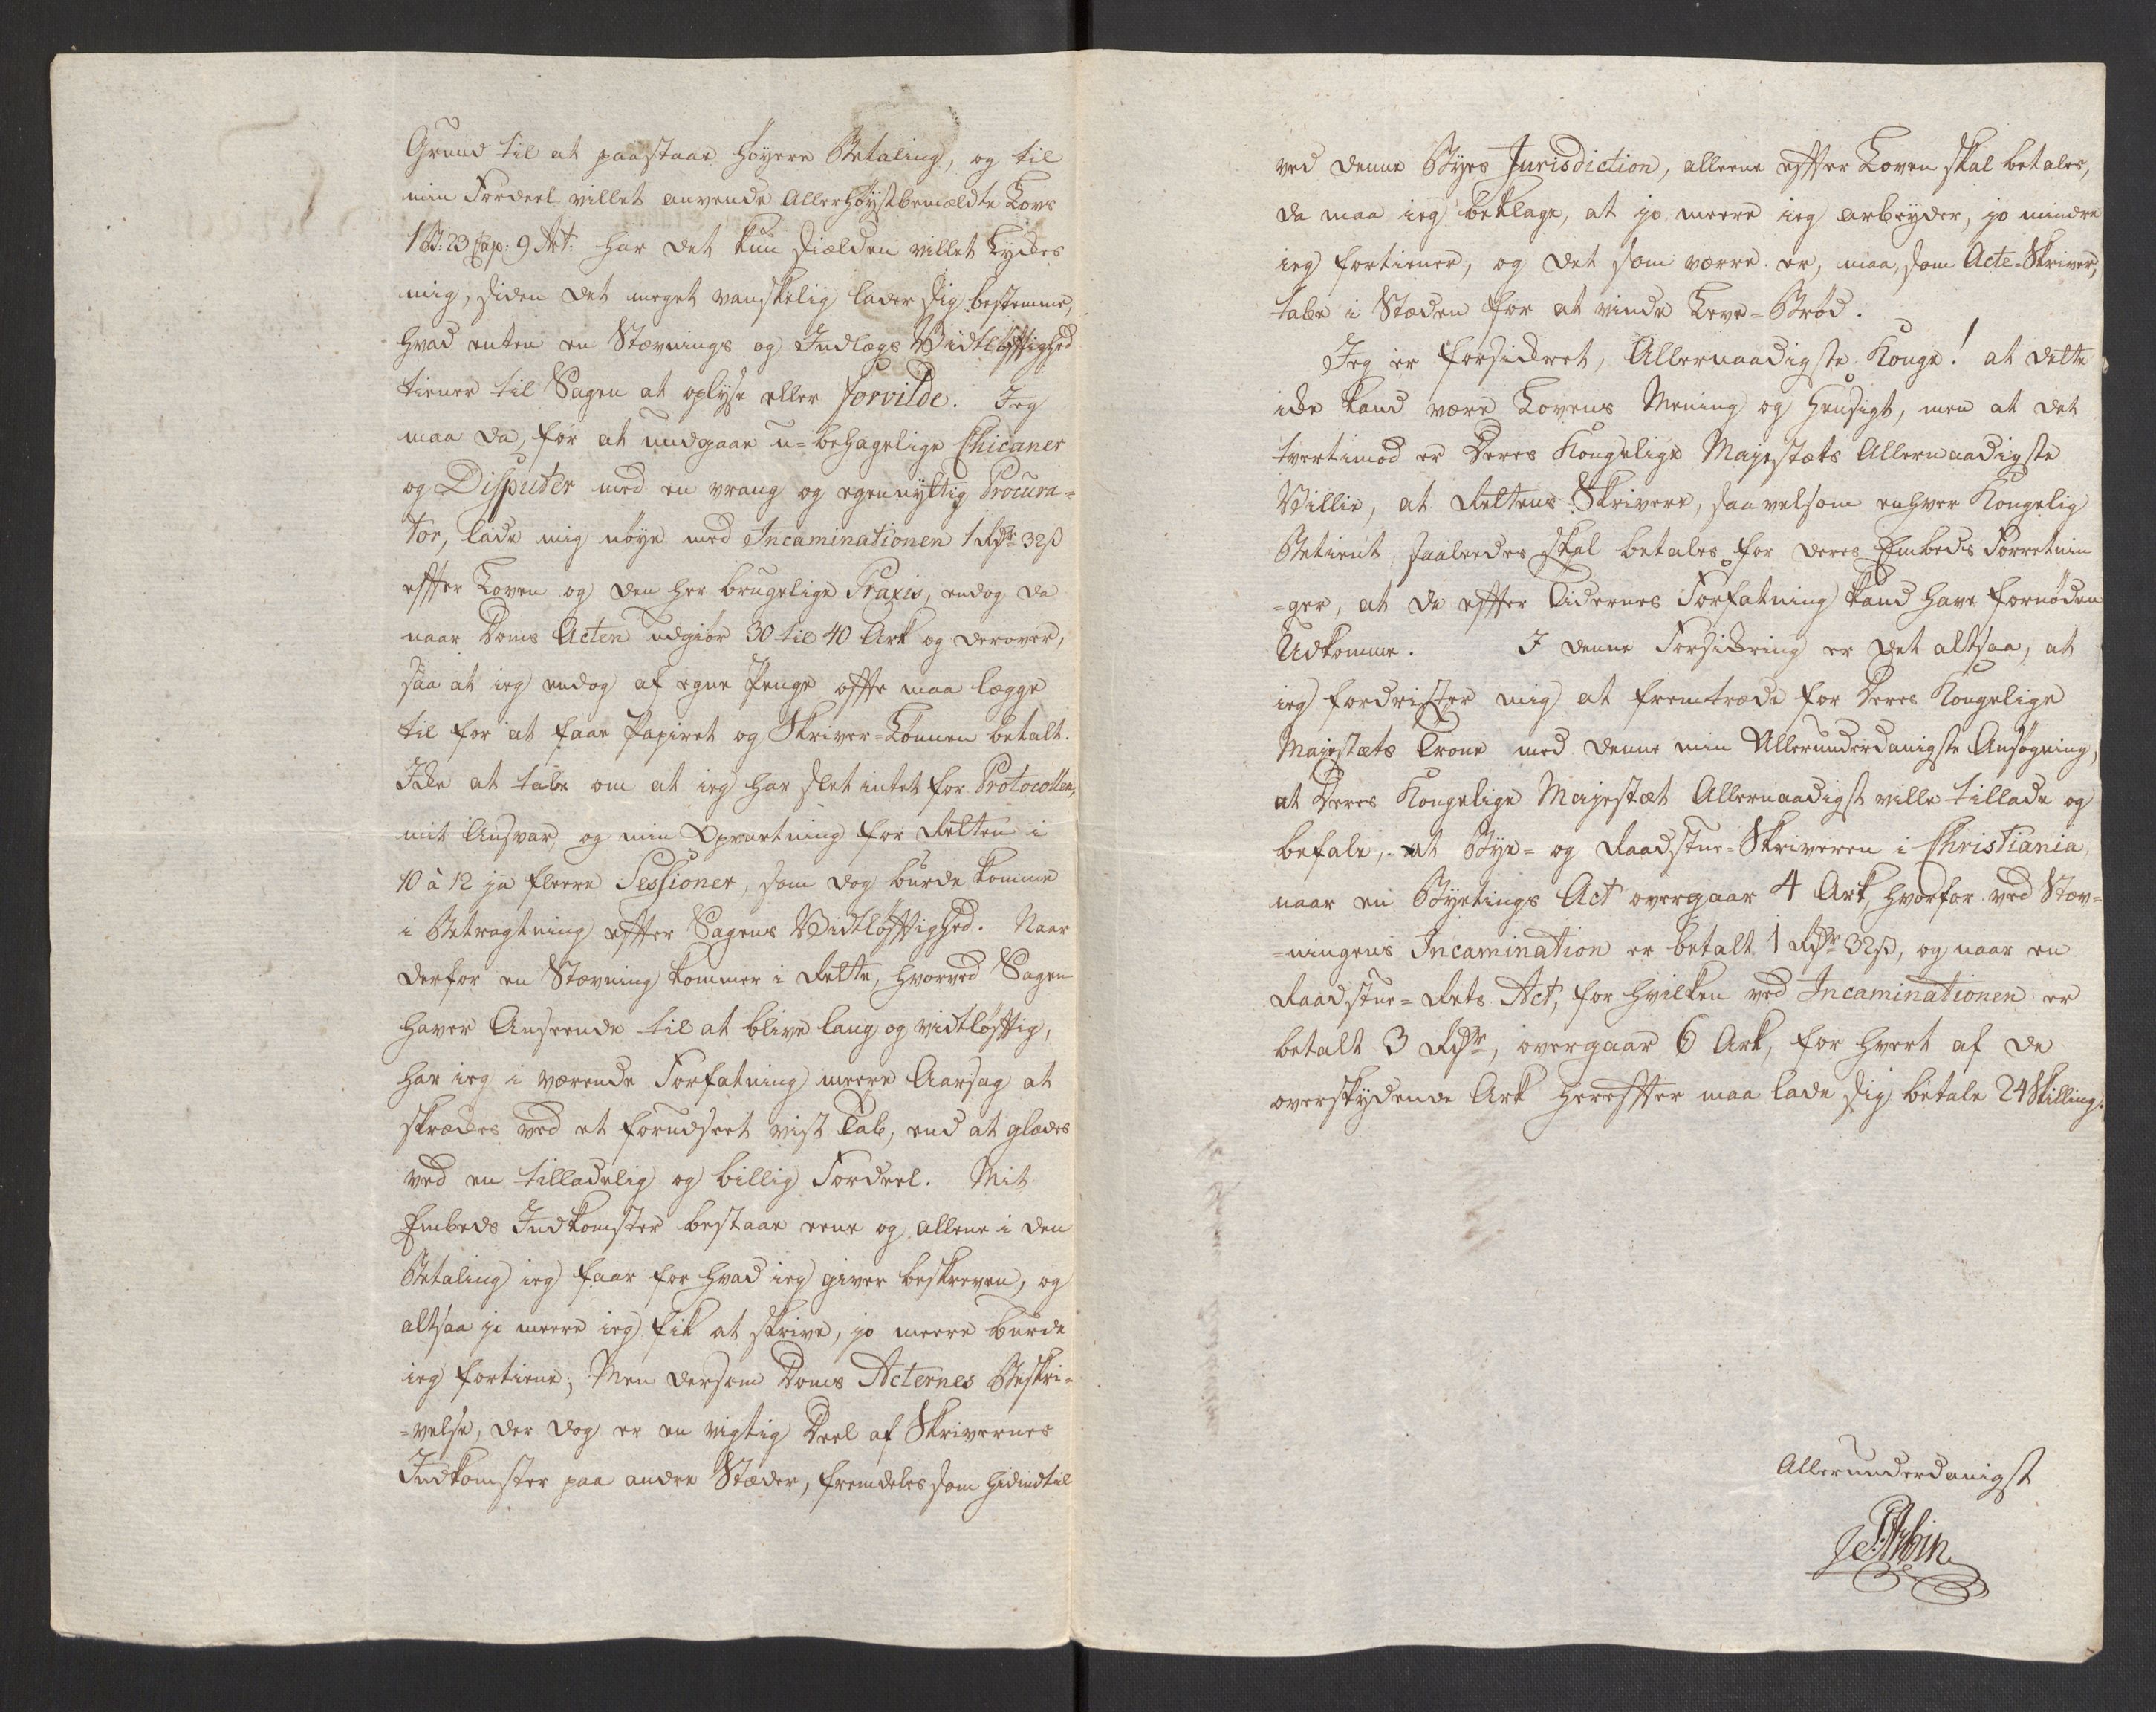 Grund til at paastaae høyere Betaling, og til
min Fordeel villet anvende Allerhøystbemældte Lovs
1 B: 23 Cap: 9 Art: har det kun sielden villet Lyckes
mig, siden det meget vanskelig lader sig bestemme,
hvad enten en Stævnings og Indlægs Vidtløftighed
tiener til Sagen at oplyse eller forvilde. Jeg
maa da, for at undgaae u-behagelige Chicaner
og Disputer med en vrang og egennyttig Procura-
tor, lade mig nøye med Incaminationen 1 Rdr 32ß
efter Loven og den her brugelige Praxis, endog da
naar Doms Acten udgiør 30 til 40 Ark og derover,
saa at ieg endog af egne Penge ofte maa lægge
til for at faae Papiret og Skriver-Lønnen betalt.
Icke at tale om at ieg har slet intet for Protocollen,
mit Ansvar, og min Opvartning for Retten i
10 à 12 ja fleere Sessioner, som dog burde komme
i Betragtning efter Sagens Vidtløftighed. Naar
derfor en Stævning kommer i Rette, hvorved Sagen
haver Anseende til at blive lang og vidtløftig,
har ieg i værende Forfatning meere Aarsag at
skrækkes ved et forudseet vist Tab, end at glædes
ved en tilladelig og billig Fordeel. Mit
Embeds Indkomster bestaae eene og allene i den
Betaling ieg faar for hvad ieg giver beskreven, og
altsaa jo meere ieg fik at skrive, jo meere burde
ieg fortiene; Men dersom Doms Acternes Beskri-
-velse, der dog er en vigtig Deel af Skrivernes
Indkomster paa andre Stæder, fremdeles som hidindtil
ved denne Byes Jurisdiction, alleene efter Loven skal betales,
da maa ieg beklage, at jo meere ieg arbeyder, jo mindre
ieg fortiener, og det som værre er, maa, som Acte-Skriver,
tabe i Stæden for at vinde Leve-Brød.
Jeg er forsickret, Allernaadigste Konge! at dette
icke kand være Lovens Mening og Hensigt, men at det
tvertimod er Deres Kongelige Majestæts Allernaadigste
Villie, at Rettens Skrivere, saavelsom enhver Kongelig
Betient saaleedes skal betales for deres Embeds Forretnin
-ger, at de efter Tidernes Forfatning kand have fornøden
Udkomme. I denne Forsickring er det altsaa, at
ieg fordrister mig at fremtræde for Deres Kongelige
Majestæts Trone med denne min Allerunderdanigste Ansøgning,
at Deres Kongelige Majestæt Allernaadigst ville tillade og
befale, at Bye- og Raadstue-Skriveren i Christiania,
naar en Byetings Act overgaar 4 Ark, hvorfor ved Stæv-
-ningens Incamination er betalt 1 Rdr 32ß, og naar en
Raadstue-Rets Act, for hvilken ved Incaminationen er
betalt 3 Rdr, overgaar 6 Ark, for hvert af de
overskydende Ark herefter maa lade sig betale 24 Skilling.
Allerunderdanigst